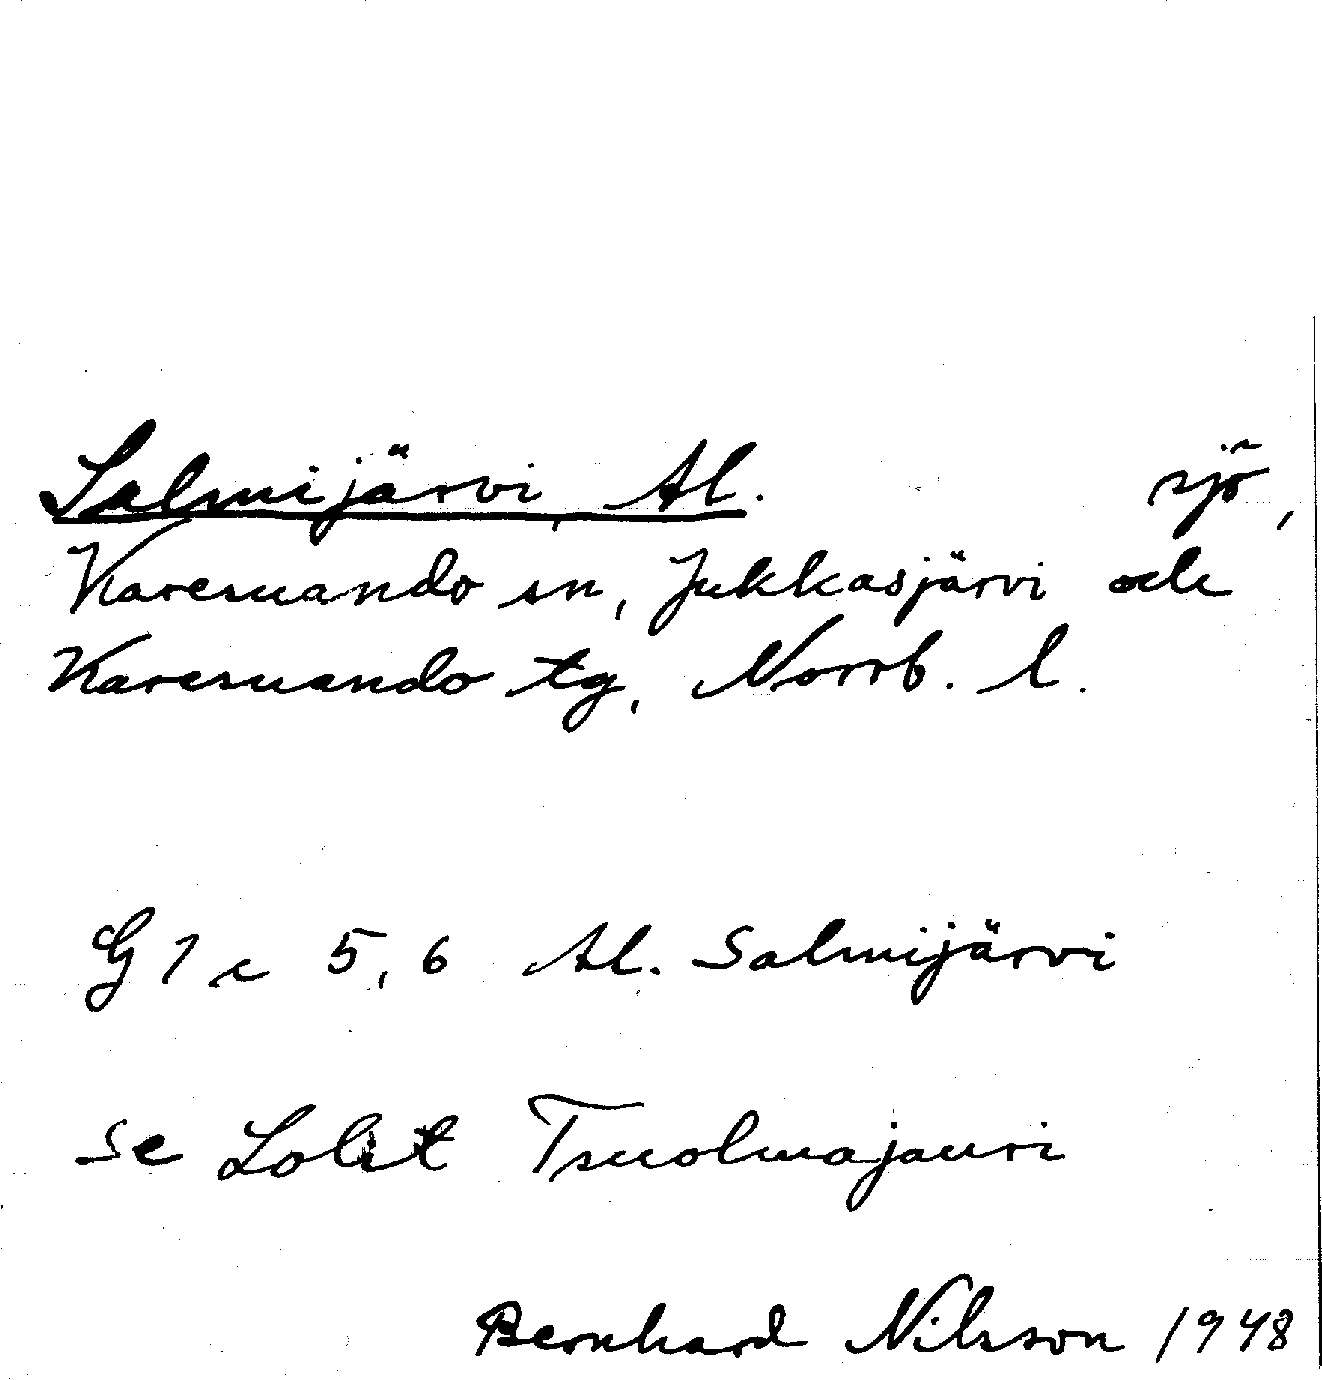 Salmijärvi, Al. sjö,
Karesuando sn, Jukkasjärvi och
Karesuando tg, Norrb. l.
G 1 c 5,6 Al. Salmijärvi
se Tsuolmajauri
Bernhard Nilsson 1948